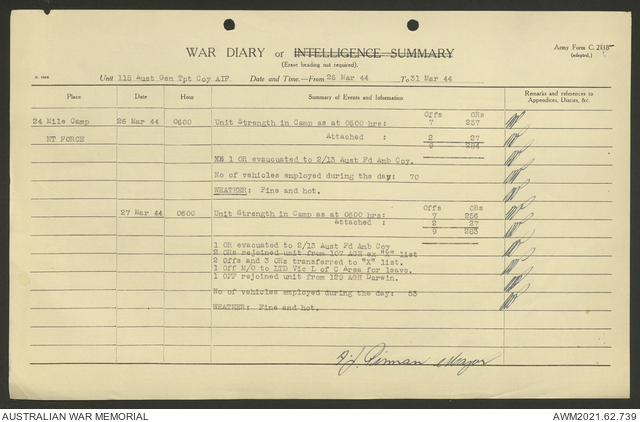 WAR DIARY or INTELLIGENCE SUMMARY
Army Form C. 2118
(adapted.)
(Erase heading not required).
Unit 118 Aust Gen Tpt Coy AIF Date and Time.—From 26 Mar 44 To 31 Mar 44
Place Date Hour Summary of Events and Information Remarks and references to
Appendices, Diaries, &c.
Offs ORs
24 Mile Camp 26 Mar 44 0600 Unit Strength in Camp as at 0600 hrs: 7 257
NT FORCE Attached : 2 27
9 284
1 OR evacuated to 2/13 Aust Fd Amb Coy.
No of vehicles employed during the day: 70
WEATHER: Fine and hot.
Offs ORs
27 Mar 44 0600 Unit Strength in Camp as at 0600 hrs: 7 256
Attached : 2 27
9 283
1 OR evacuated to 2/13 Aust Fd Amb Coy
2 ORs rejoined unit from 107 AGH ex "X" list
2 Offs and 3 ORs transferred to "X" list.
1 Off M/O to LTD Vic L of C Area for leave.
1 Off rejoined unit from 129 AGH Darwin.
No of vehicles employed during the day: 53
WEATHER: Fine and hot.
Major
AUSTRALIAN WAR MEMORIAL AWM2021.62.739